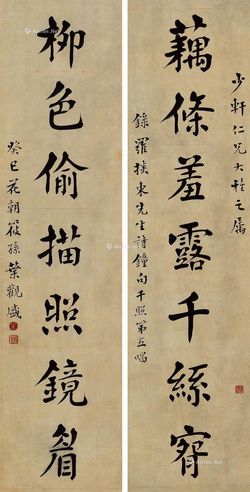 少軒仁兄大雅之屬
藕條羞露千絲
錄羅掞東先生詩鐘句千照第五唱
柳色偷描照鏡眉
癸巳花朝筱孫葉觀盛